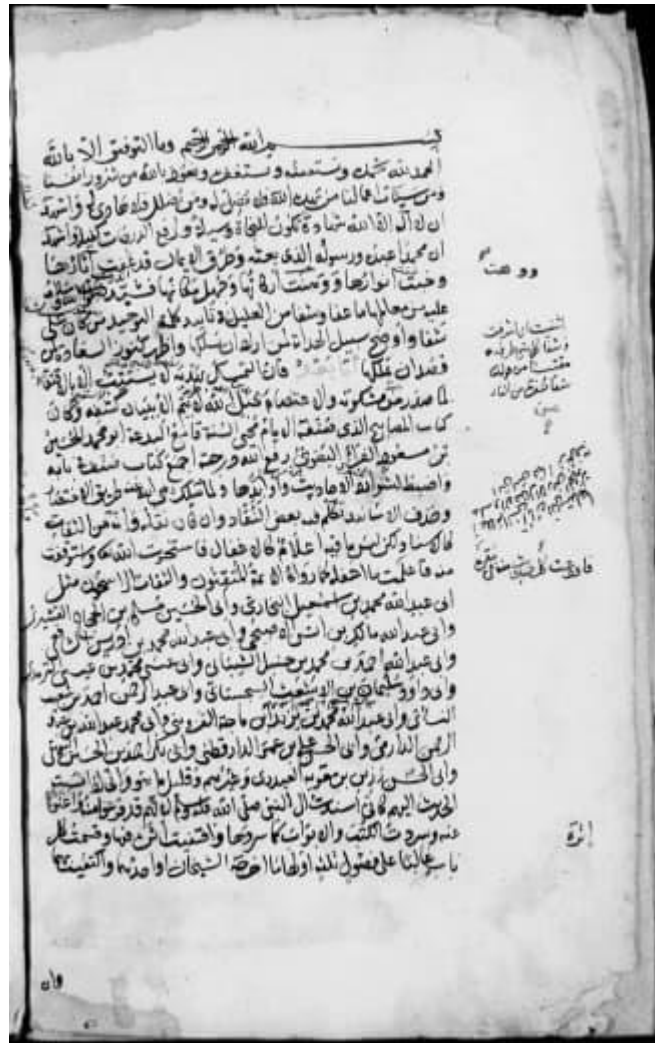 بسم الله الرحمن الرحيم وما التوفيق الا بالله
الحمد لله نحمده ونستعينه ونستغفره ونعوذ بالله من شرور انفسنا
ومن سيئات اعمالنا من يهده الله فلا مضل له ومن يضلل فلا هادي له واشهد
ان لا اله الا الله شهادة تكون للنجاة وسيلة ولرفع الدرجات كفيلة واشهد
ان محمدا عبده ورسوله الذي بعثه وطرق الايمان قد عفت آثارها
وخبت انوارها ووهنت اركانها وجهل مكانها فشيد
عليه من معالمها ما عفا وشفا من العليل في تاييد كلمة التوحيد من كان على
شفا واوضح سبيل الهداية لمن اراد ان يسلكها واظهر كنوز السعادة لمن
قصد ان يملكها اما بعد فان التمسك بهديه لا يستتب الا بالاقتفاء
لما صدر من مشكوته والاعتصام بحبل الله لا يتم الا ببيان كشفه وكان
كتاب المصابيح الذي صنفه الامام محيي السنة قامع البدعة ابو محمد الحسين
بن مسعود الفراء البغوي رفع الله درجته اجمع كتاب صنف في بابه
واضبط لشوارد الاحاديث واوابدها ولما سلك طريق الاختصار
وحذف الاسانيد تكلم فيه بعض النقاد وان كان نقله وانه من الثقات
كالاسناد لكن ليس ما فيه اعلام كالاغفال فاستخرت الله واستوفقت
منه فاعلمت ما اغفله كما رواه الائمة المتقنون والثقات الراسخون مثل
ابي عبد الله محمد بن اسمعيل البخاري وابي الحسين مسلم بن الحجاج القشيري
وابي عبد الله مالك بن انس الاصبحي وابي عبد الله محمد بن ادريس الشافعي
وابي عبد الله احمد بن محمد بن حنبل الشيباني وابي عيسى محمد بن عيسى الترمذي
وابي داود سليمان بن الاشعث السجستاني وابي عبد الرحمن احمد بن شعيب
النسائي وابي عبد الله محمد بن يزيد ابن ماجة القزويني وابي محمد عبد الله بن عبد
الرحمن الدارمي وابي الحسن علي بن عمر الدارقطني وابي بكر احمد بن الحسين البيهقي
وابي الحسن رزين بن معوية العبدري وغيرهم وقليل ما هو واني اذا نسبت
الحديث اليهم كاني اسندت الى النبي صلى الله عليه وسلم لانهم قد فرغوا منه واغنونا
عنه وسردت الكتب والابواب كما سردها واقتفيت اثره فيها وقسمت كل
باب غالبا على فصول ثلثة اولها ما اخرجه الشيخان او احدهما واكتفيت بهما
وان
ووهنت
فاودعت كل حديث منه في مقره
اثره